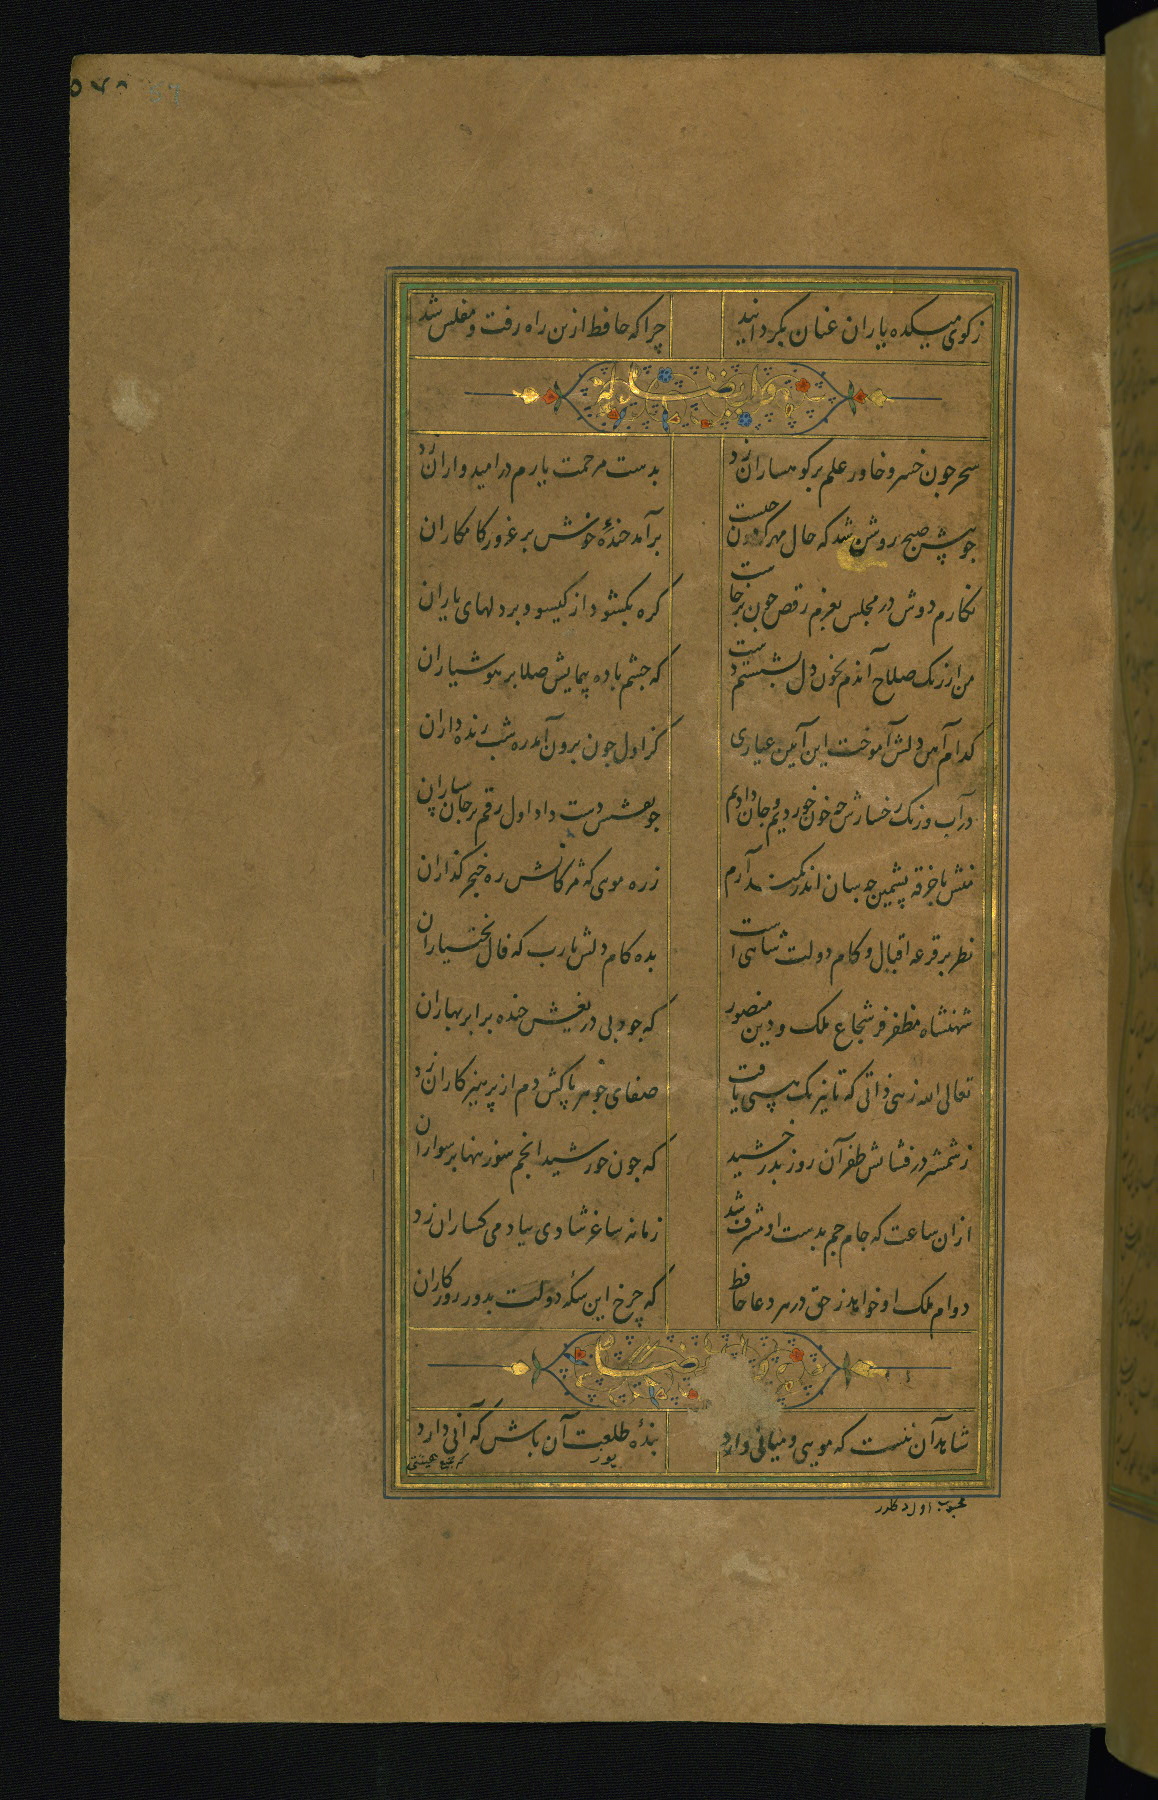 ۵۷۸
زکوی میکده یاران عنان بگردانید چرا که حافظ ازین راه رفت و مفلس شد
و ایضا له
سحر چون خسرو خاور علم بر کوهساران زد بدست مرحمت یارم در امیدواران زد
جو پیش صبح روشن شد که حال مهر گردون چیست برآمد خندهٔ خوش بر غرور کامکاران
نکارم دوش در مجلس بعزم رقص جون برجاست کره بکشود از کیسو و بر دلهای یاران
من از رنک صلاح آندم بخون دل بشستم دست که جشم باده پیمایش صلا بر هوشیاران
کدام آهن دلش آموخت این آیین عیاری کز اول جون برون آمد ره شب زنده داران
در آب و رنک رخسارش جه خون خوردیم و جان دادیم جو نقشش دست داد اول رقم بر جان سپاران
منش با خرقه پشمین جه سان اندر کمند آرم زره مویی که مژکانش ره خنجر کذاران
نظر بر قرعه اقبال و کام دولت شاهی است بده کام دلش یارب که فال بختیاران
شهنشاه مظفر فر شجاع ملک و دین منصور که جود بی دریغش خنده بر ابر بهاران
تعالی الله زهی ذاتی که تا نیرنک هستی یافت صفای جوهر پاکش دم از پرهیزکاران زد
ز شمشیر درفشانش ظفر آن روز بدرخشید که جون خورشید انجم سوز تنها بر سواران
ازان ساعت که جام جم بدست او مشرف شد زمانه ساغر شادی بیاد می کساران زد
دوام ملک او خواهد ز حق در هر دعا حافظ که چرخ این سکه دولت بدور روزکاران
ایضا
شاهد آن نیست که مویی و میانی دارد بندهٔ طلعت آن باش که آنی دارد